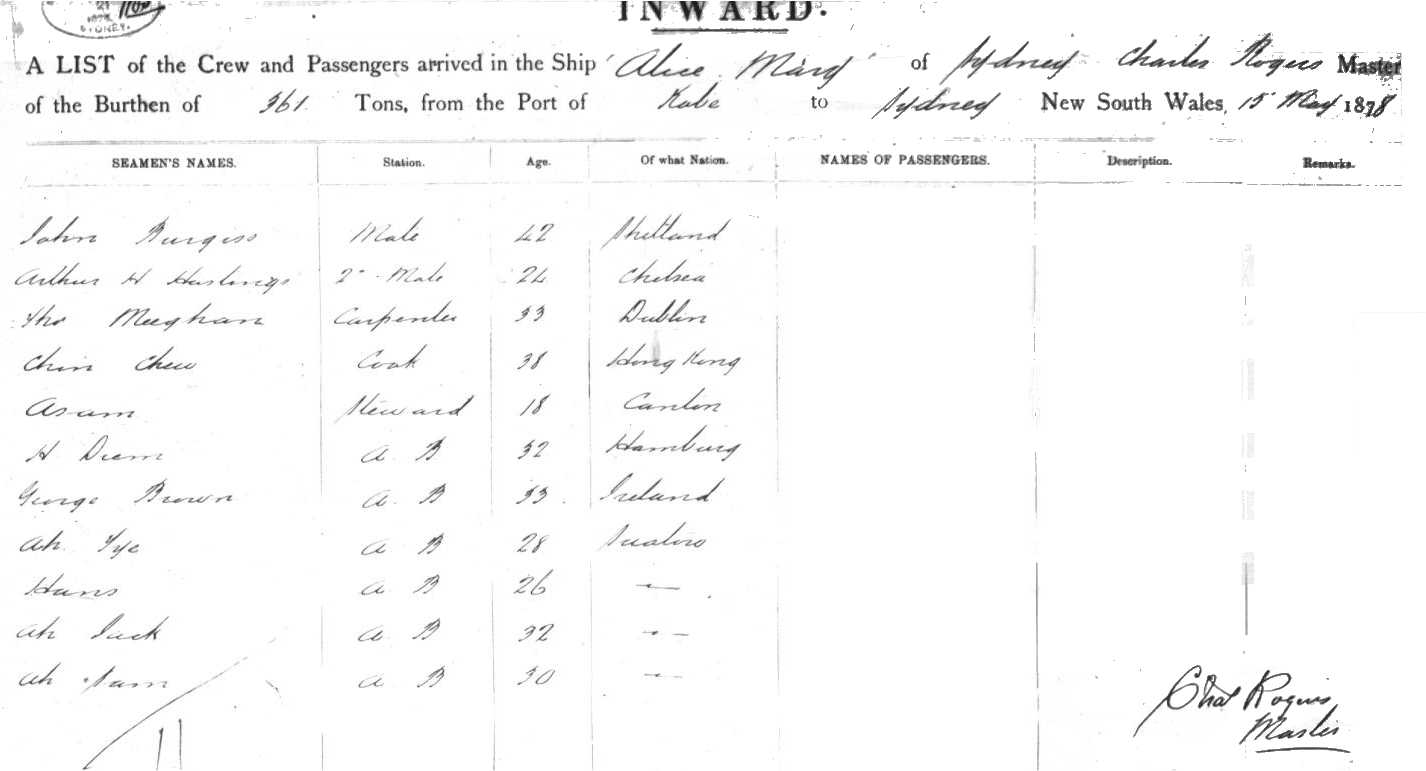 21
1878
SYDNEY.
INWARD.
A LIST of the Crew and Passengers arrived in the Ship "Alice Mary" of Sydney Charles Rogers Master
of the Burthen of 361 Tons, from the Port of Kobe to Sydney New South Wales, 15 May 1878
SEAMEN'S NAMES. Station. Age. Of what Nation. NAMES OF PASSENGERS. Description. Remarks.
John Burgess Mate 42 Shetland
Arthur H Hastings 2nd Mate 24 Chelsea
Thos Meeghan Carpenter 33 Dublin
Chin Chew Cook 38 Hong Kong
Asam Steward 18 Canton
H Diem A.B 32 Hamburg
George Brown A.B 33 Ireland
Ah Tye A B 28
Hans A.B 26 —
Ah Jack A. B 32 — " —
Ah Sam A B 30 — " —
11
Chas Rogers
Master